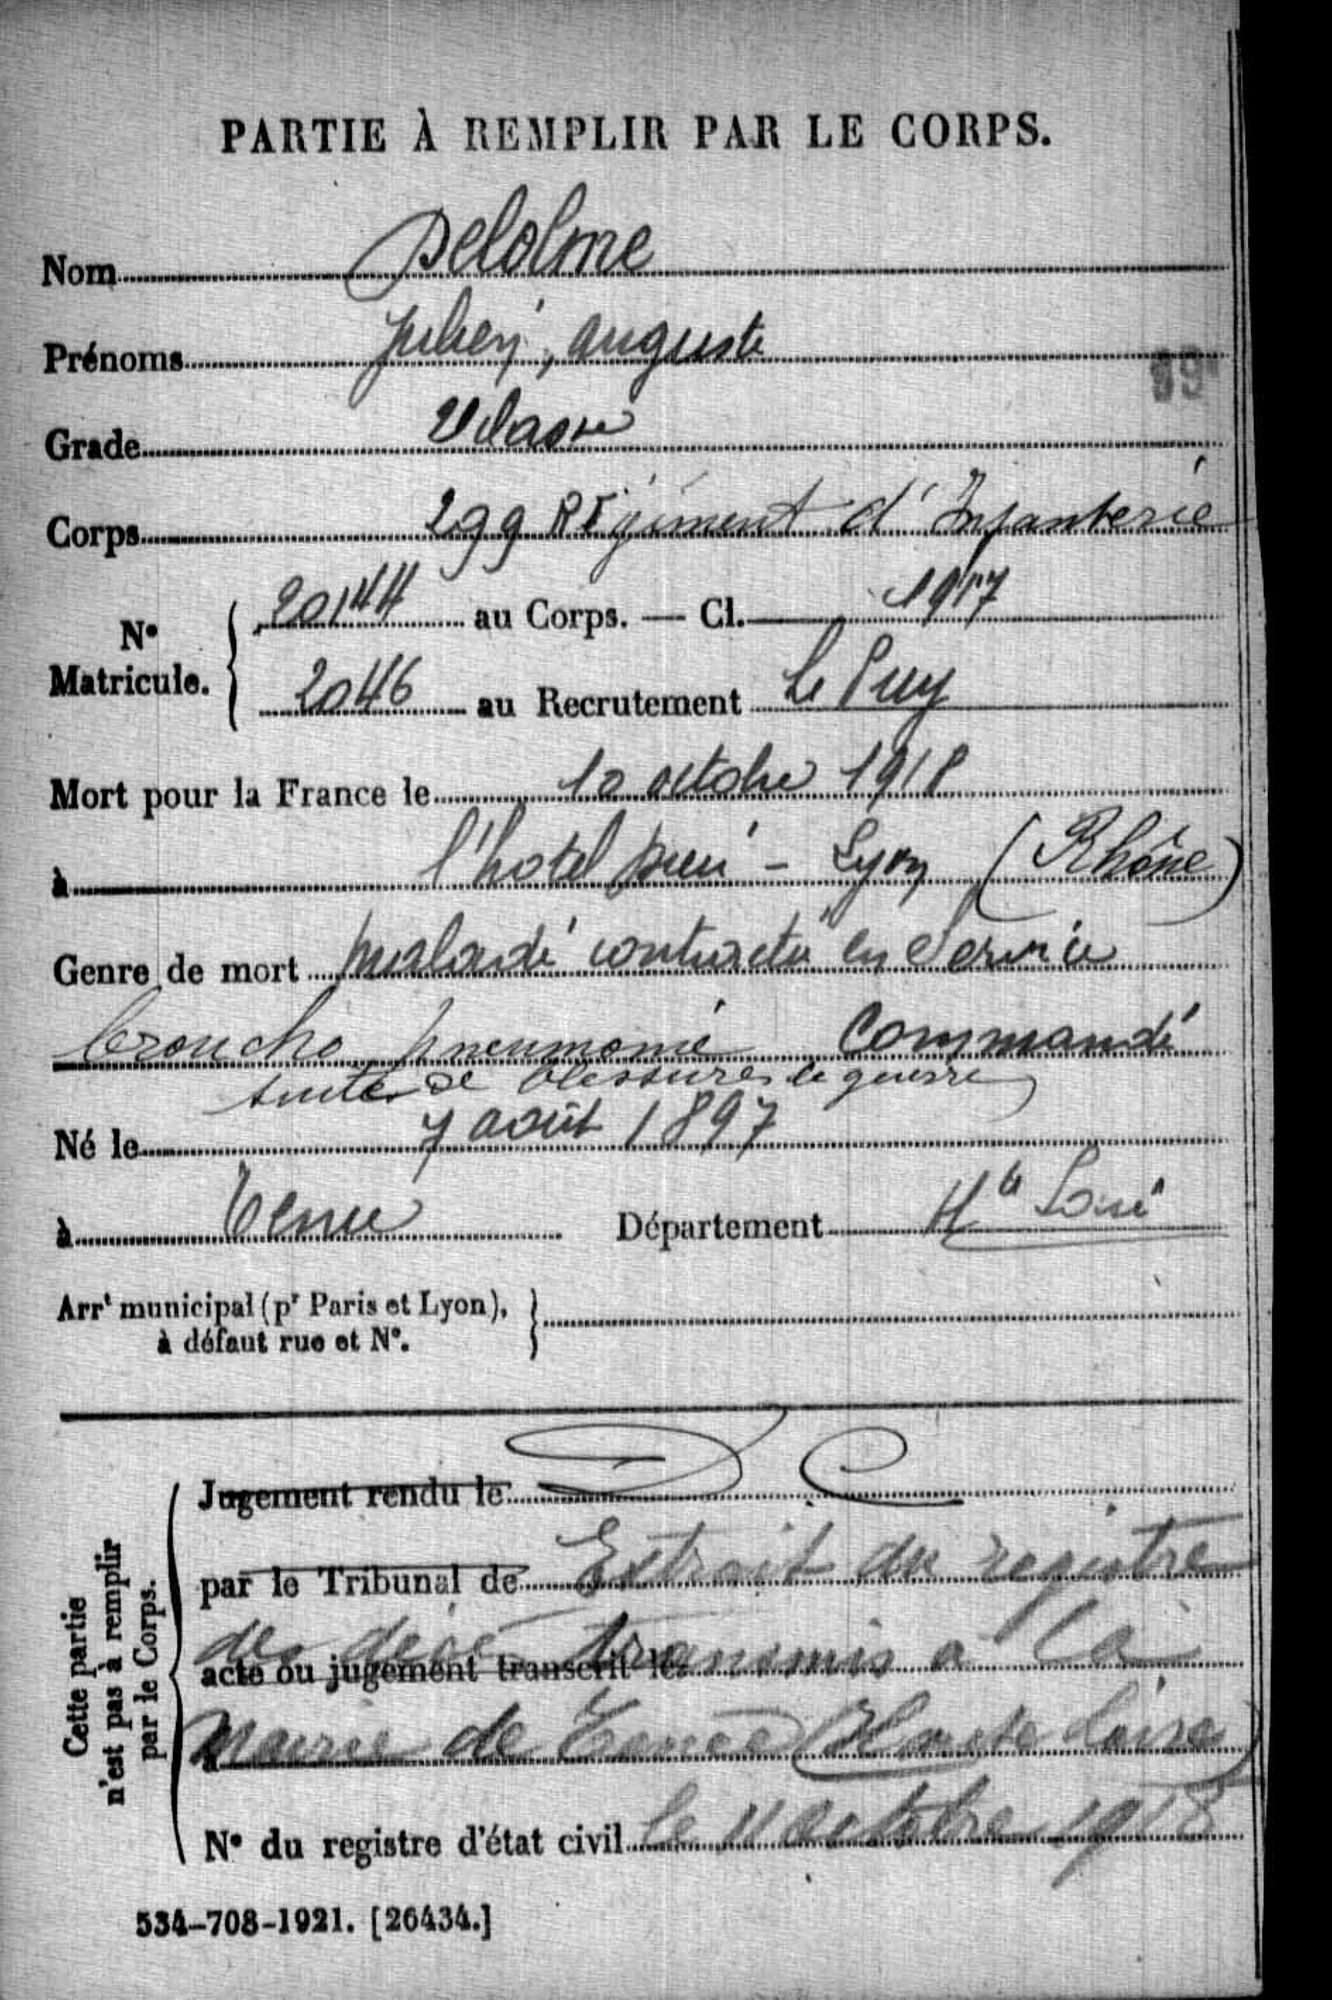 PARTIE À REMPLIR PAR LE CORPS.
Nom Delolme
Prénoms Julien, auguste
99
Grade 2 classe
Corps 299 Régiment d'Infanterie
N° Matricule. { 20144 au Corps. — Cl. 1917
2046 au Recrutement Le Puy
Mort pour la France le 10 octobre 1918
à l'hotel Dieu - Lyon (Rhône)
Genre de mort maladie contractée en Service
broncho pneumonie Commandé
suite de blessures de guerre
Né le 7 août 1897
à Tence Département Hte Loire
Arrt municipal (pr Paris et Lyon), à défaut rue et N°. }
Cette partie n'est pas à remplir par le Corps.
Jugement rendu le
par le Tribunal de Extrait du registre
des décès transmis à la
acte ou jugement transcrit le
à Mairie de Tence (Haute Loire)
N° du registre d'état civil le 11 octobre 1918
534-708-1921. [26434.]